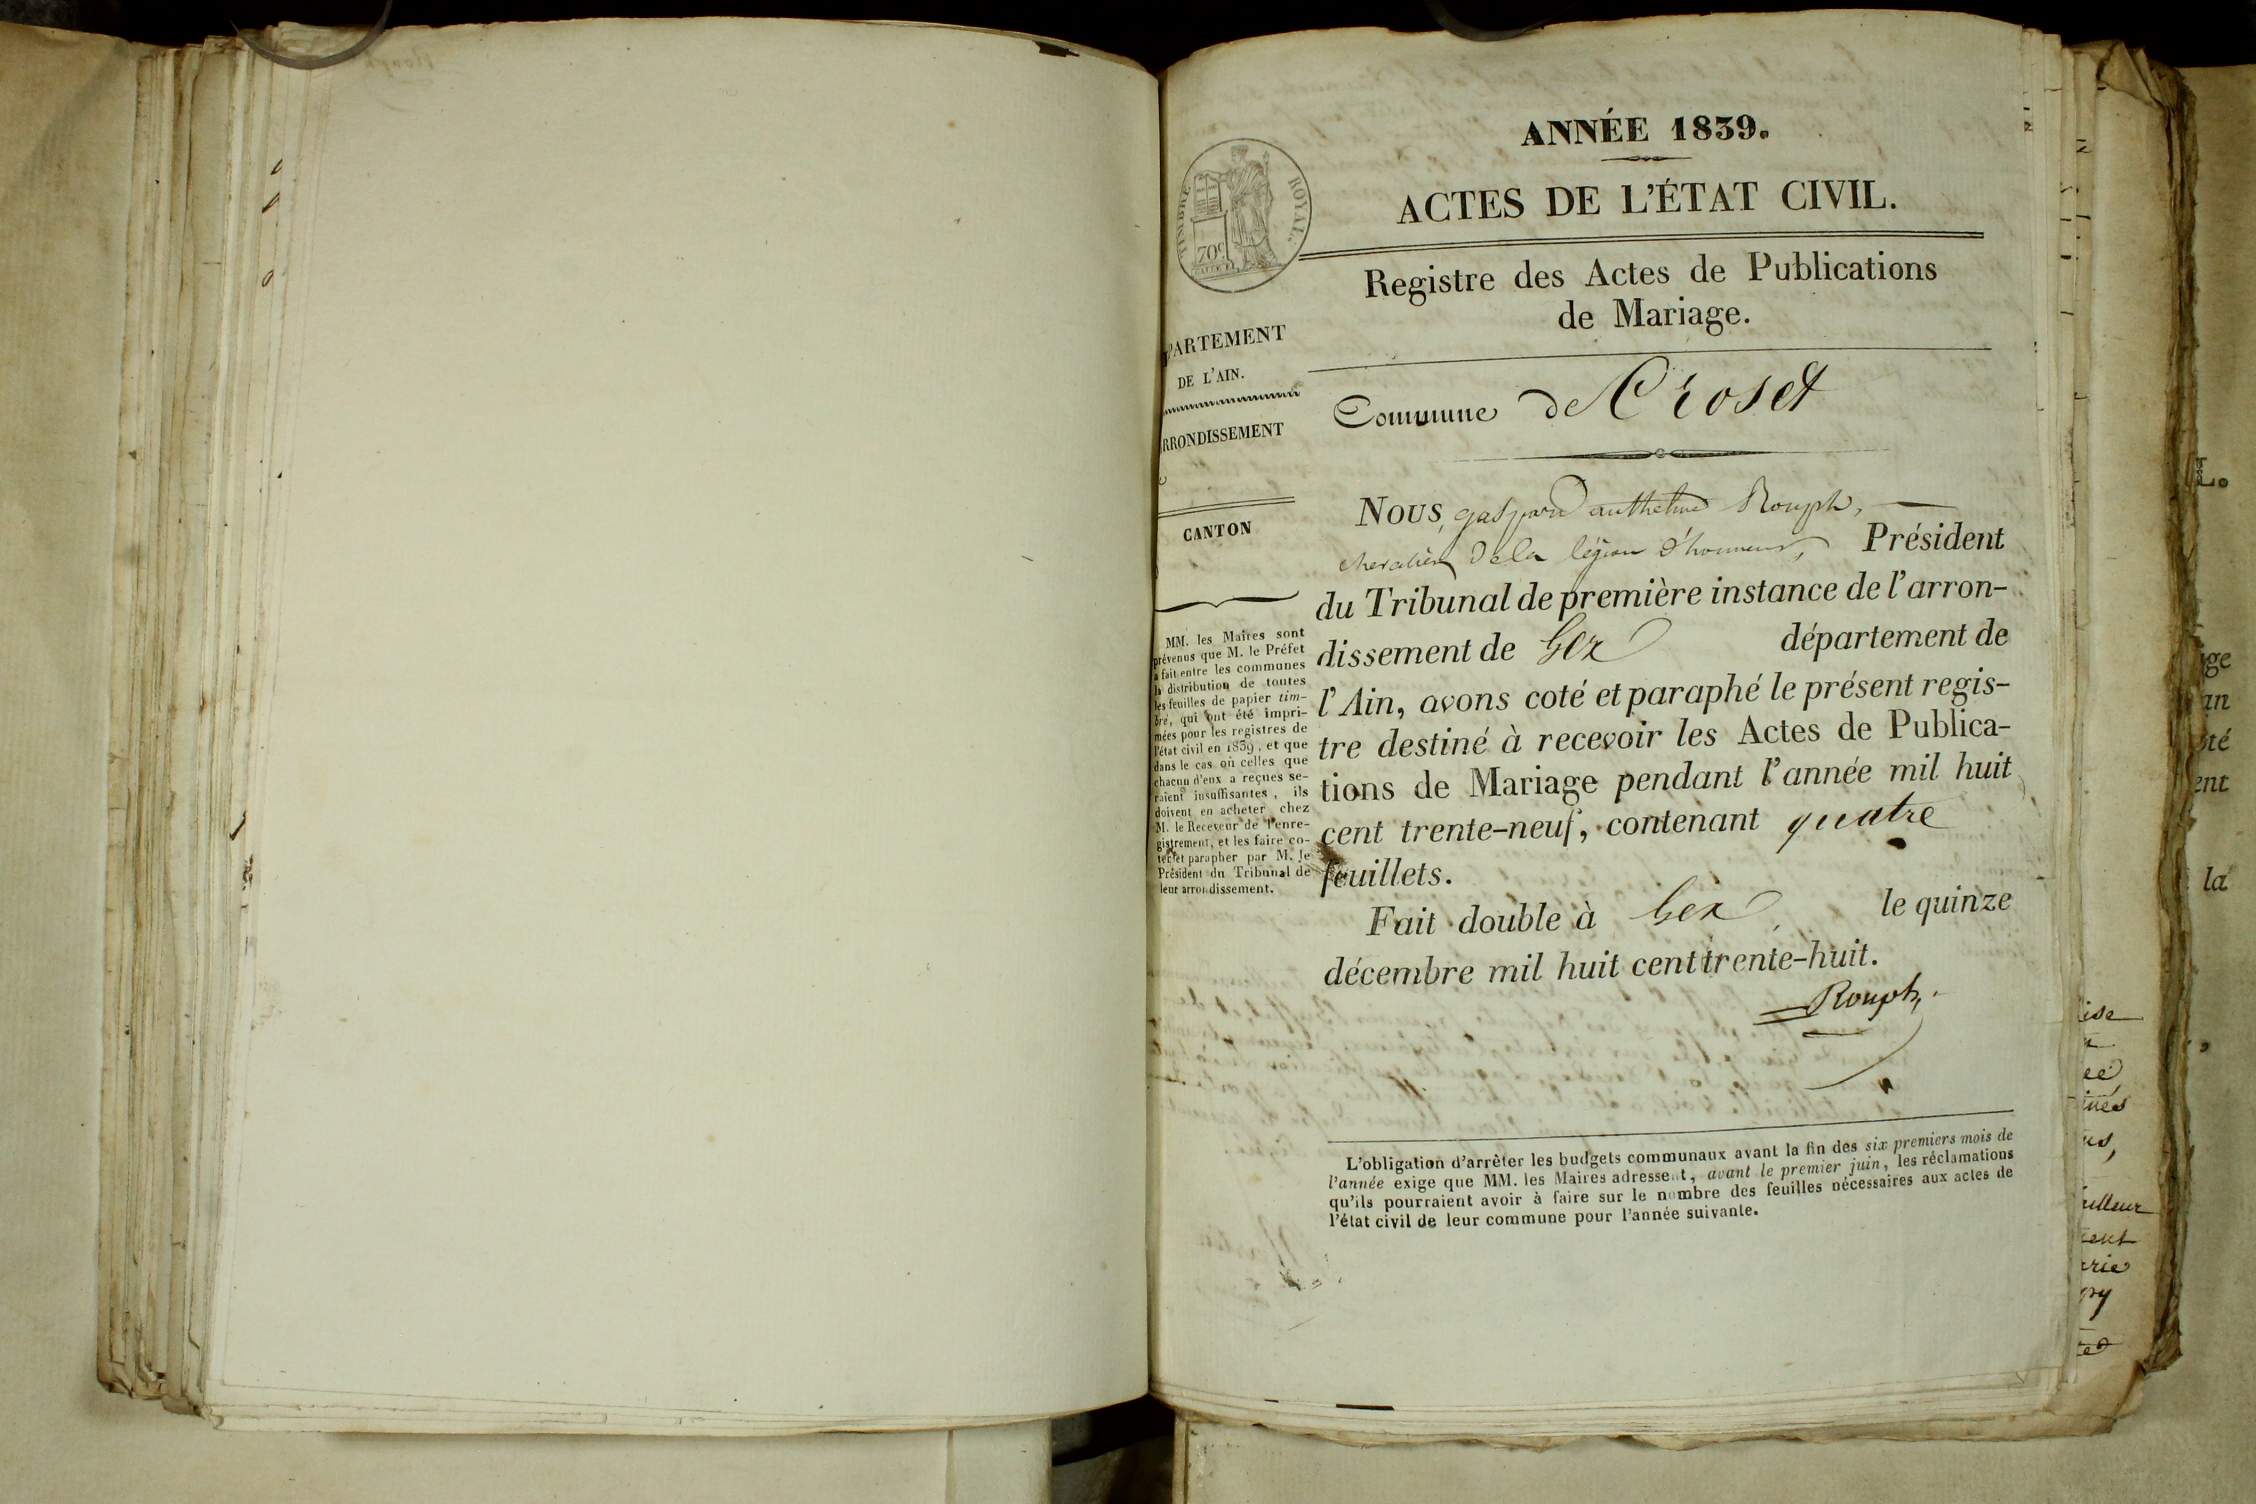 ANNÉE 1839.
ACTES DE L'ÉTAT CIVIL.
TIMBRE ROYAL.
70 c
Registre des Actes de Publications
de Mariage.
PARTEMENT
DE L'AIN.
RRONDISSEMENT
CANTON
Commune de Croset
Nous, gaspard anthelme Rouph,
chevalier de la légion d'honneur, Président
du Tribunal de première instance de l'arron-
dissement de Gex département de
l'Ain, avons coté et paraphé le présent regis-
tre destiné à recevoir les Actes de Publica-
tions de Mariage pendant l'année mil huit
cent trente-neuf, contenant quatre
feuillets.
Fait double à Gex, le quinze
décembre mil huit cent trente-huit.
Rouph
MM. les Maires sont
prévenus que M. le Préfet
a fait entre les communes
la distribution de toutes
les feuilles de papier tim-
bré, qui ont été impri-
mées pour les registres de
l'état civil en 1839, et que
dans le cas où celles que
chacun d'eux a reçues se-
raient insuffisantes, ils
doivent en acheter chez
M. le Receveur de l'enre-
gistrement, et les faire co-
ter et parapher par M. le
Président du Tribunal de
leur arrondissement.
L'obligation d'arrêter les budgets communaux avant la fin des six premiers mois de
l'année exige que MM. les Maires adressent, avant le premier juin, les réclamations
qu'ils pourraient avoir à faire sur le nombre des feuilles nécessaires aux actes de
l'état civil de leur commune pour l'année suivante.